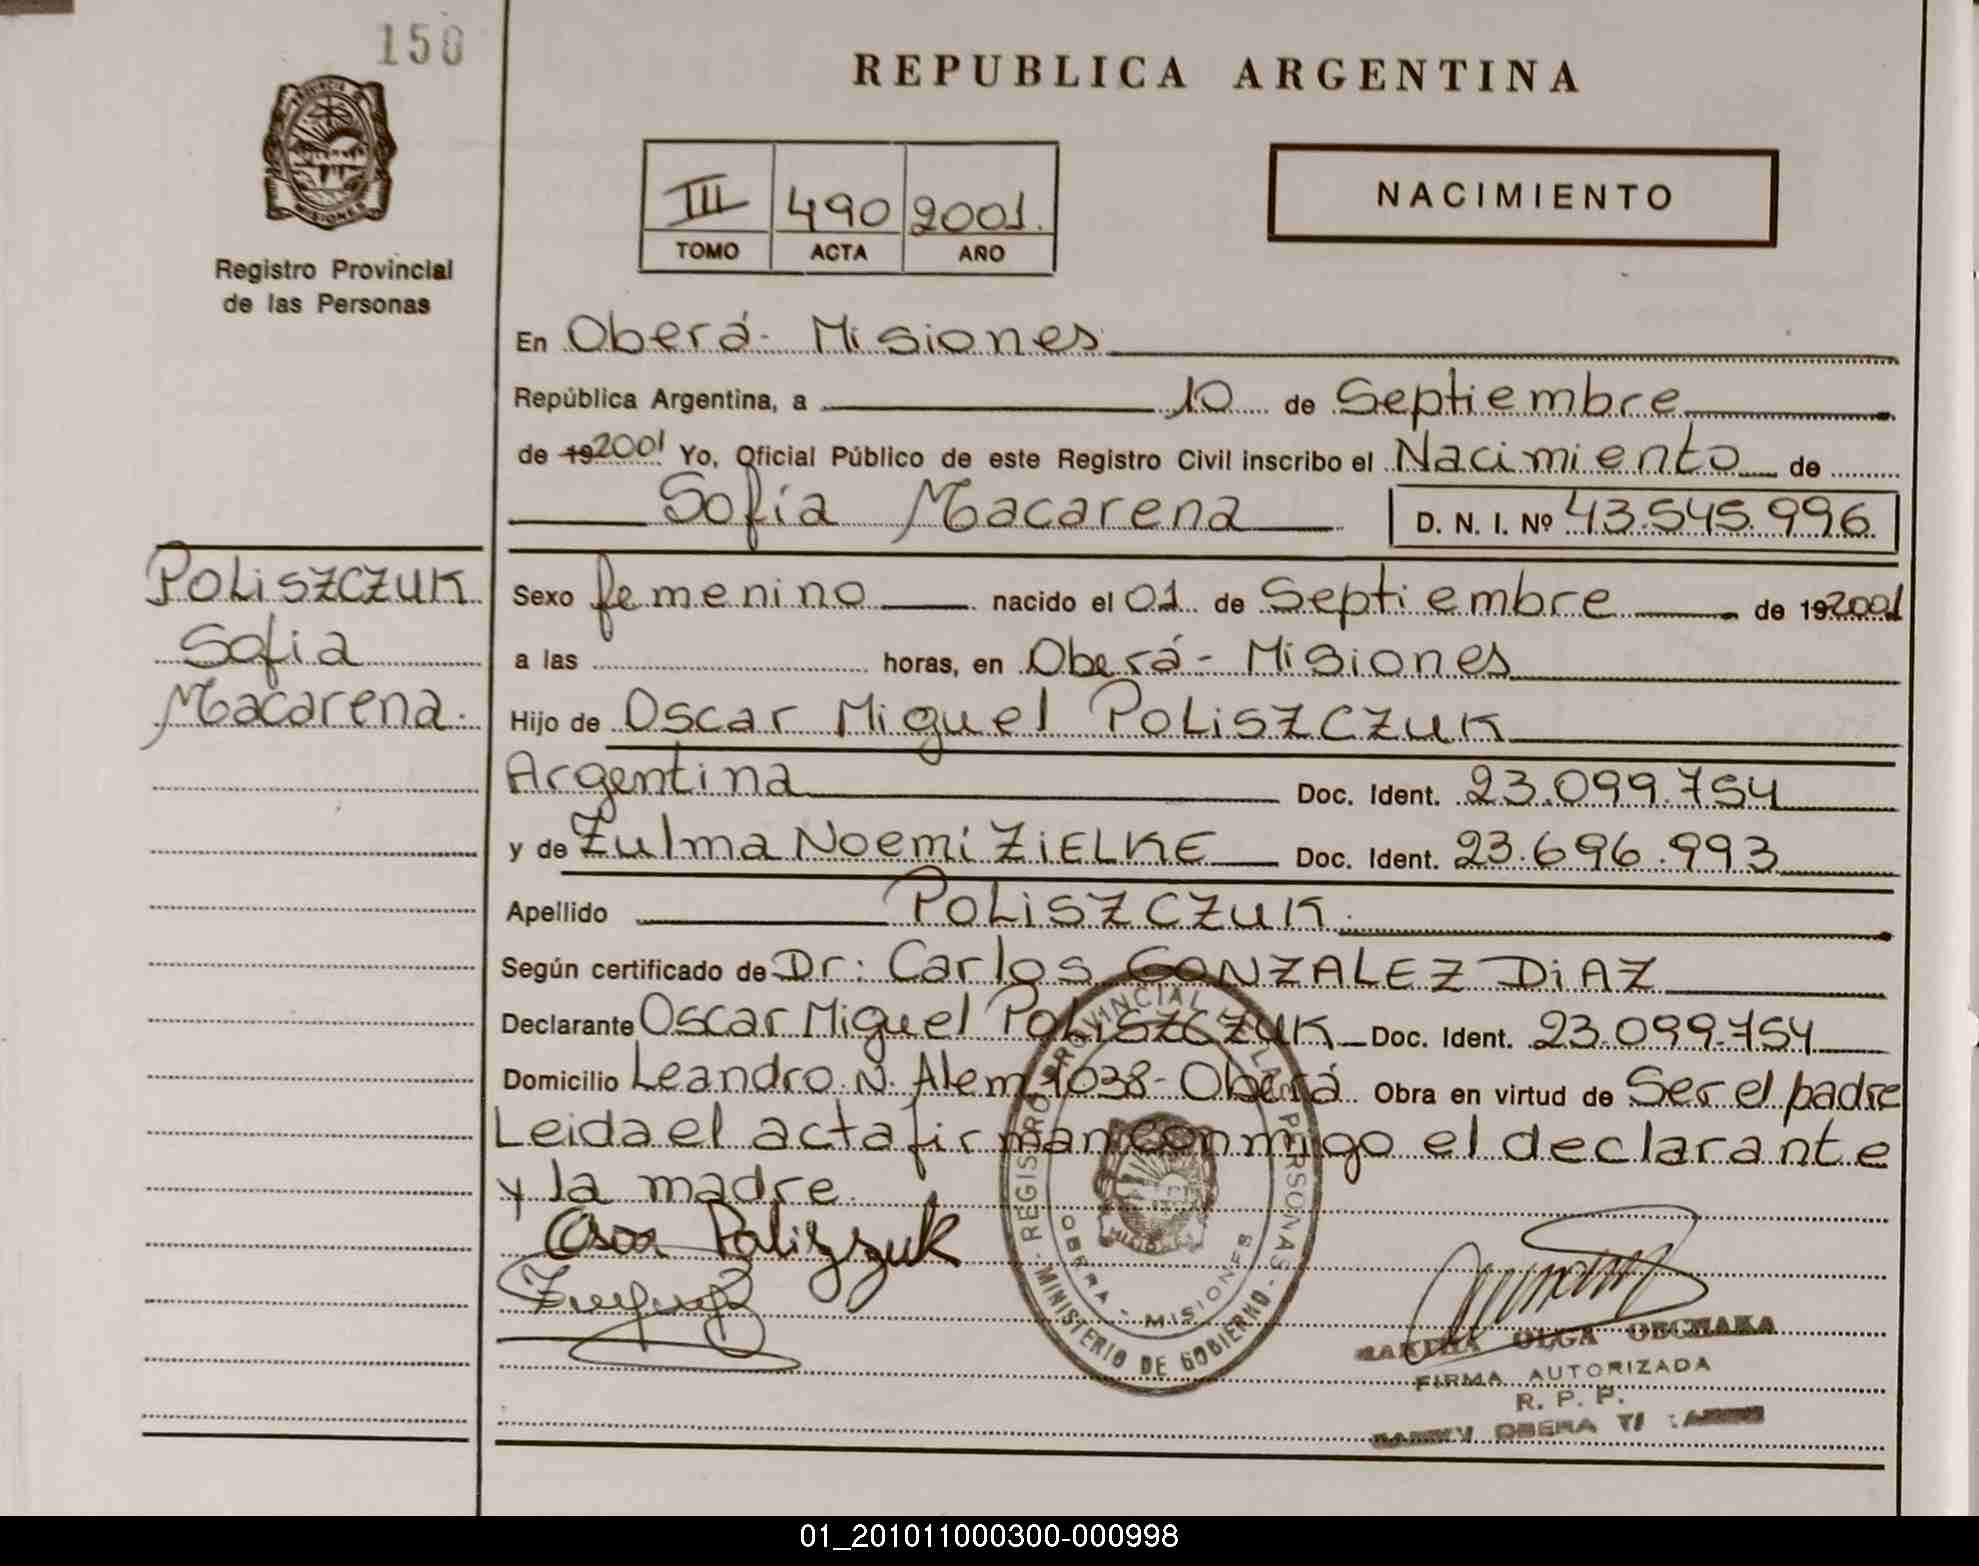 150
REPUBLICA ARGENTINA
PROVINCIA DE
MISIONES
Registro Provincial
de las Personas
III 490 2001.
TOMO ACTA AÑO
NACIMIENTO
En Oberá - Misiones
República Argentina, a 10 de Septiembre
de 19 2001 Yo, Oficial Público de este Registro Civil inscribo el Nacimiento de
Sofía Macarena D. N. I. Nº 43.545.996
POLISZCZUK
Sofia
Macarena.
Sexo femenino nacido el 01 de Septiembre de 19 2001
a las horas, en Oberá - Misiones
Hijo de Oscar Miguel POLISZCZUK
Argentina Doc. Ident. 23.099.754
y de Zulma Noemí ZIELKE Doc. Ident. 23.696.993
Apellido POLISZCZUK.
Según certificado de Dr: Carlos GONZALEZ DIAZ
Declarante Oscar Miguel POLISZCZUK Doc. Ident. 23.099.754
Domicilio Leandro N. Alem 1038 - Oberá Obra en virtud de Ser el padre
Leida el acta firman conmigo el declarante
y la madre.
REGISTRO PROVINCIAL DE LAS PERSONAS
OBERA - MISIONES
MINISTERIO DE GOBIERNO
OLGA
FIRMA AUTORIZADA
R. P. P.
OBERA
01_201011000300-000998